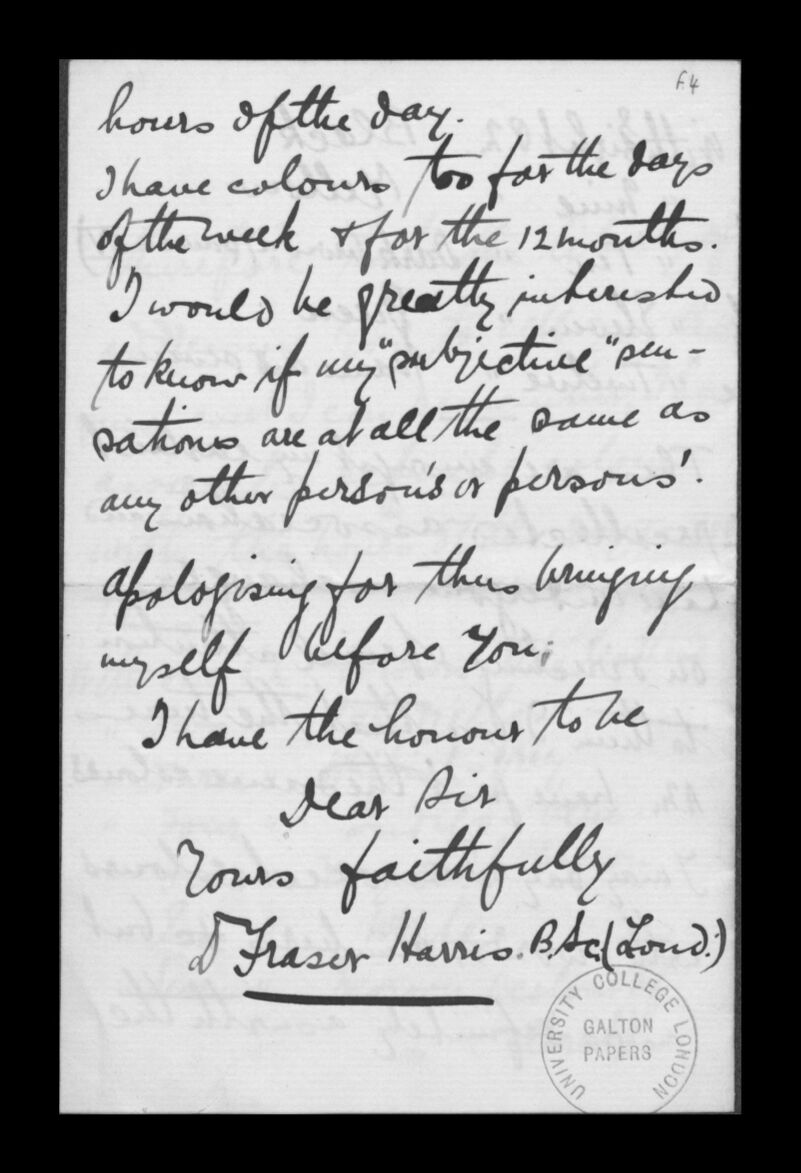 f4
hours of the day.
I have colours too for the days
of the week & for the 12 months.
I would be greatly interested
to know if my "subjective" sen-
sations are at all the same as
any other person's or persons'.
Apologising for thus bringing
myself before you;
I have the honour to be
Dear Sir
Yours faithfully
D Fraser Harris. B.Sc. (Lond.)
UNIVERSITY COLLEGE LONDON
GALTON
PAPERS